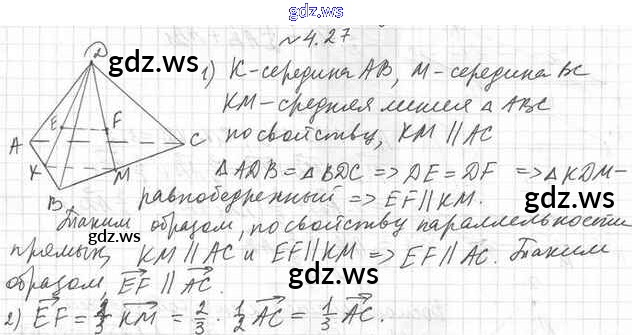 gdz.ws
№ 4.27
D
gdz.ws
1) K-середина AB, M-середина BC
KM-средняя линия △ ABC
E F
A C
по свойству, KM || AC
K M
B
△ADB = △BDC => DE = DF => △KDM-
равнобедренный => EF || KM.
gdz.ws
Таким образом, по свойству параллельности
прямых, KM || AC и EF || KM => EF || AC. Таким
gdz.ws gdz.ws
образом, EF || AC.
2) EF = 2/3 KM = 2/3 · 1/2 AC = 1/3 AC.